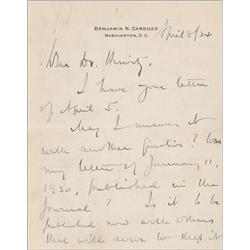 BENJAMIN N. CARDOZO
WASHINGTON, D.C.
April 8/34
Dear Dr. Hurwitz,
I have your letter
of April 5.
May I answer it
with another question? Was
my letter of January 11,
1930, published in the
Journal? Is it to be
published now with others
that will serve to keep it